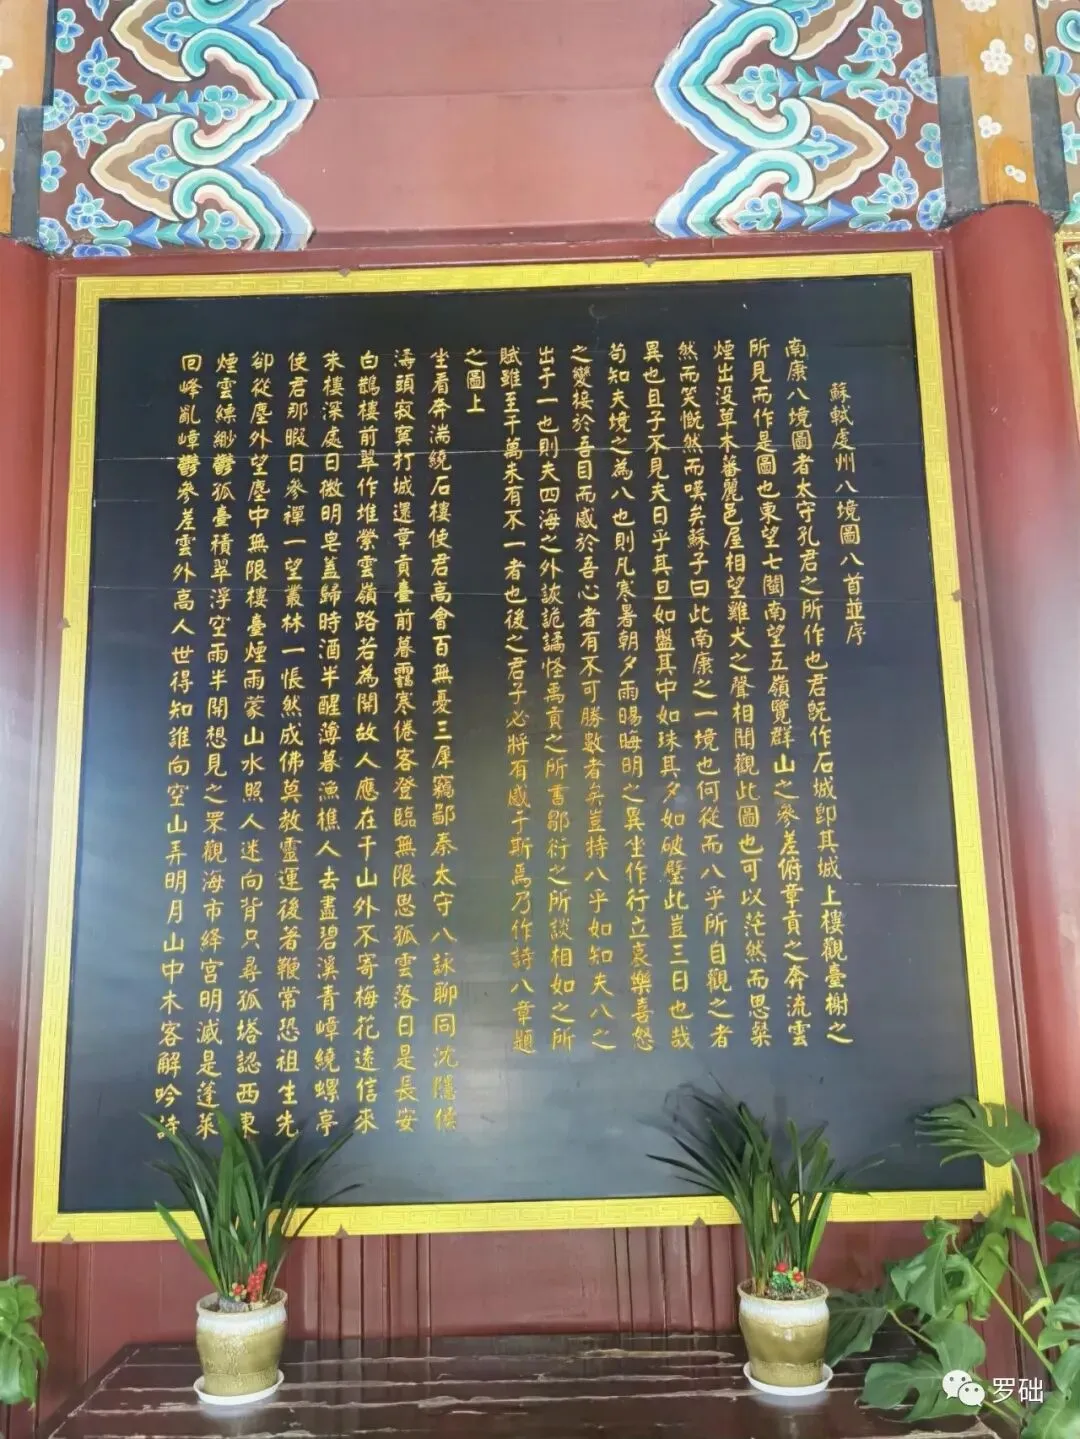 蘇軾虔州八境圖八首並序
南康八境圖者太守孔君之所作也君既作石城即其城上樓觀臺榭之
所見而作是圖也東望七閩南望五嶺覽群山之參差俯章貢之奔流雲
煙出没草木蕃麗邑屋相望雞犬之聲相聞觀此圖也可以茫然而思粲
然而笑慨然而嘆矣蘇子曰此南康之一境也何從而八乎所自觀之者
異也且子不見夫日乎其旦如盤其中如珠其夕如破璧此豈三日也哉
苟知夫境之為八也則凡寒暑朝夕雨暘晦明之異坐作行立哀樂喜怒
之變接於吾目而感於吾心者有不可勝數者矣豈特八乎如知夫八之
出于一也則夫四海之外詼詭譎怪禹貢之所書鄒衍之所談相如之所
賦雖至千萬未有不一者也後之君子必將有感于斯焉乃作詩八章題
之圖上
坐看奔湍繞石樓使君高會百無憂三犀竊鄙秦太守八詠聊同沈隱侯
濤頭寂寞打城還章貢臺前暮靄寒倦客登臨無限思孤雲落日是長安
白鵲樓前翠作堆縈雲嶺路若為開故人應在千山外不寄梅花遠信來
朱樓深處日微明皂蓋歸時酒半醒薄暮漁樵人去盡碧溪青嶂繞螺亭
使君那暇日參禪一望叢林一悵然成佛莫教靈運後著鞭常恐祖生先
卻從塵外望塵中無限樓臺煙雨蒙山水照人迷向背只尋孤塔認西東
煙雲縹緲鬱孤臺積翠浮空雨半開想見之罘觀海市絳宮明滅是蓬萊
回峰亂嶂鬱參差雲外高人世得知誰向空山弄明月山中木客解吟詩
罗础